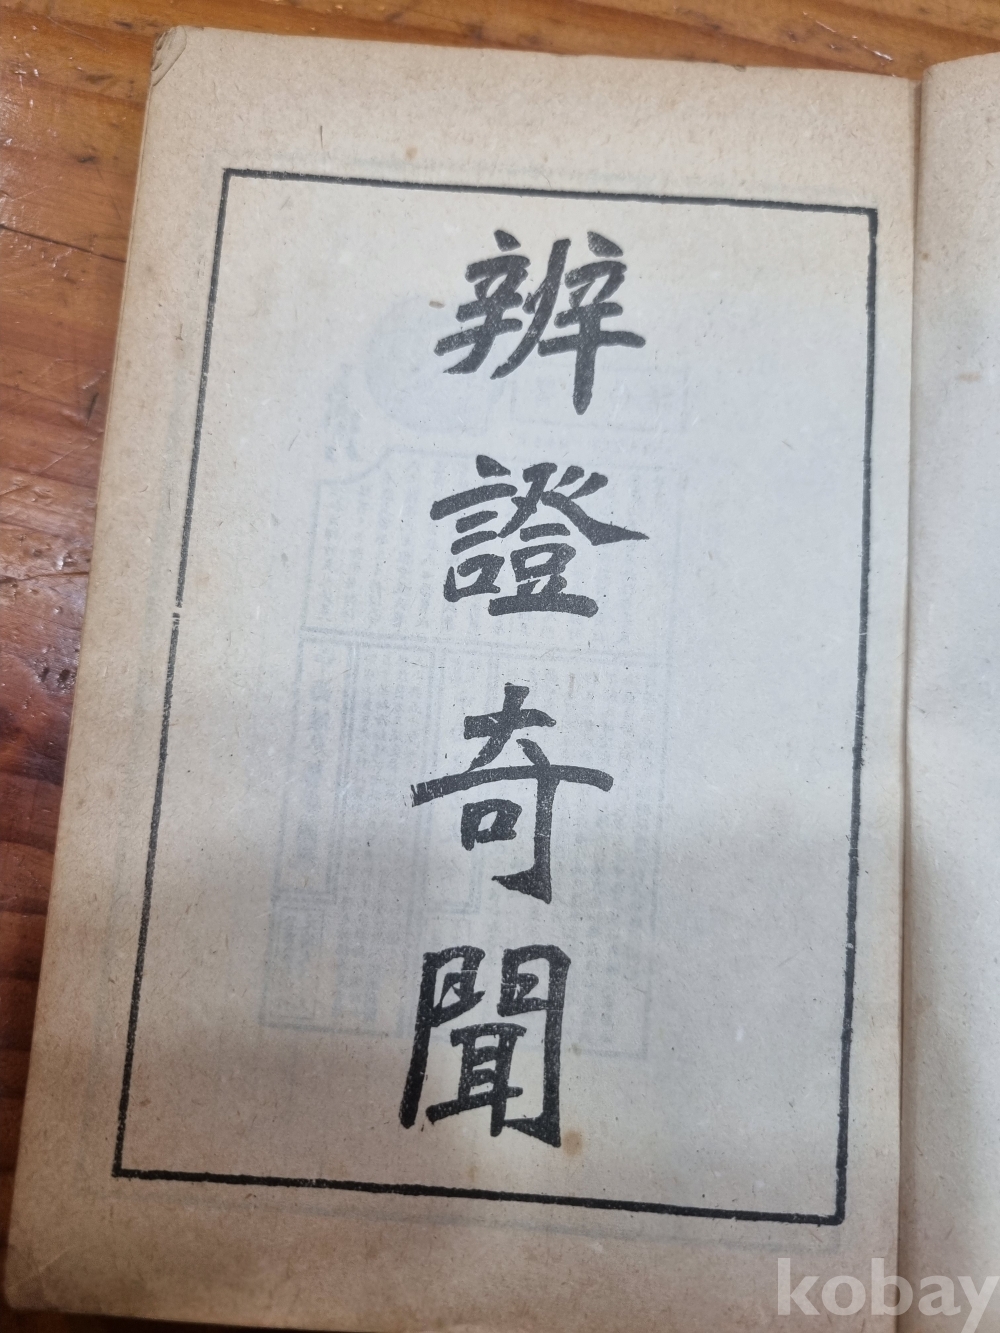 辨證奇聞
kobay